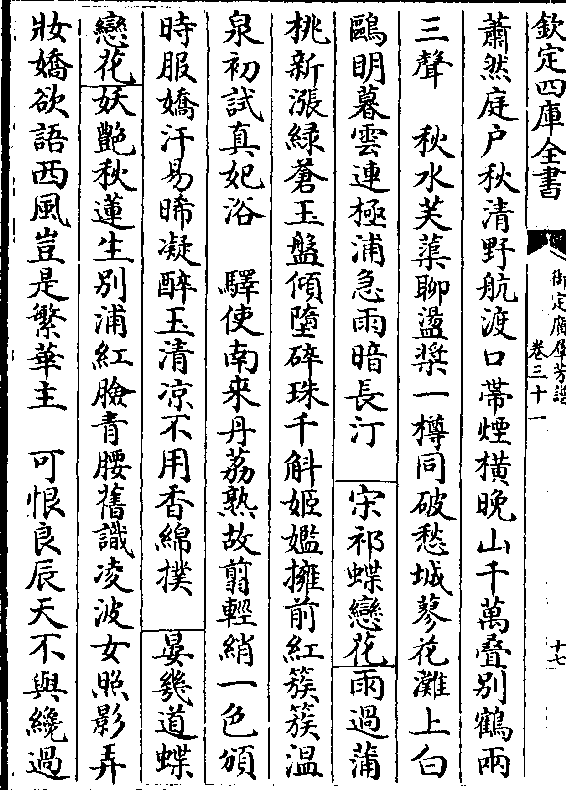 欽定四庫全書
御定廣羣芳譜
卷三十一
十七
蕭然庭户秋清野航渡口帶煙橫晚山千萬叠别鶴兩
三聲　秋水芙蕖聊盪槳一樽同破愁城蓼花灘上白
鷗明暮雲連極浦急雨暗長汀　宋祁蝶戀花雨過蒲
桃新漲綠蒼玉盤傾墮碎珠千斛姬嬨擁前紅簇簇温
泉初試真妃浴　驛使南來丹荔熟故翦輕綃一色頒
時服嬌汗易晞凝醉玉清凉不用香綿撲　晏幾道蝶
戀花妖艶秋蓮生别浦紅臉青腰舊識凌波女照影弄
妝嬌欲語西風豈是繁華主　可恨良辰天不與纔過